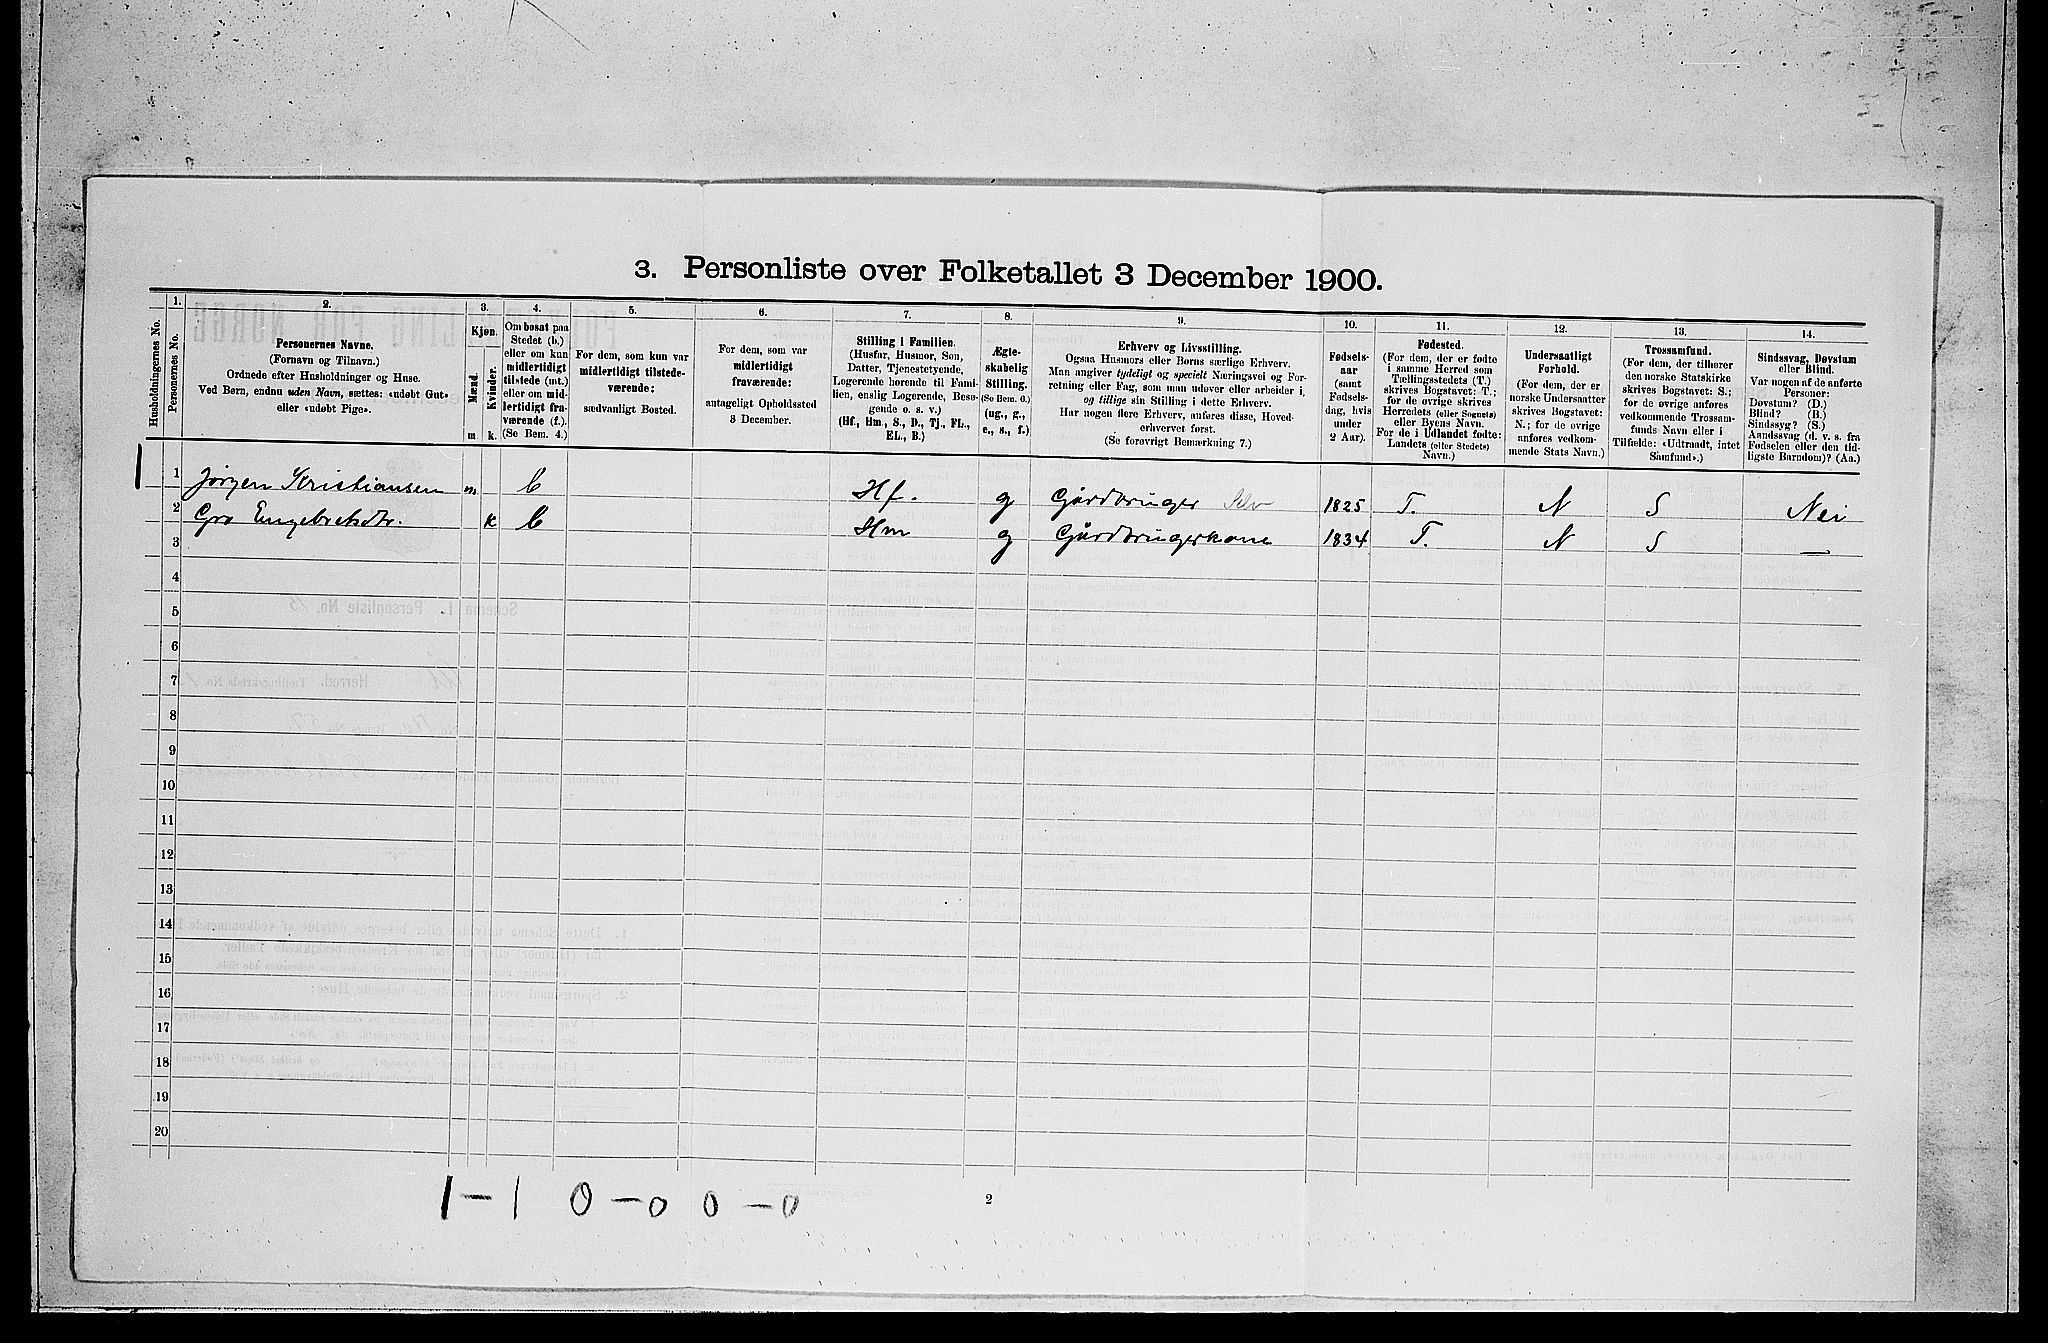 3. Personliste over Folketallet 3 December 1900.
Husholdningernes No.
1.
Personernes No.
2.
Personernes Navne.
(Fornavn og Tilnavn.)
Ordnede efter Husholdninger og Huse.
Ved Børn, endnu uden Navn, sættes: «udøbt Gut»
eller «udøbt Pige».
3.
Kjøn.
Mænd.
Kvinder.
m
k.
4.
Om bosat paa
Stedet (b.)
eller om kun
midlertidigt
tilstede (mt.)
eller om mid-
lertidigt fra-
værende (f.).
(Se Bem. 4.)
5.
For dem, som kun var
midlertidigt tilstede-
værende:
sædvanligt Bosted.
6.
For dem, som var
midlertidigt
fraværende:
antageligt Opholdssted
3 December.
7.
Stilling i Familien.
(Husfar, Husmor, Søn,
Datter, Tjenestetyende,
Logerende hørende til Fami-
lien, enslig Logerende, Besø-
gende o. s. v.)
(Hf., Hm., S., D., Tj., FL.,
EL., B.)
8.
Ægte-
skabelig
Stilling.
(Se Bem. 6.)
(ug., g.,
e., s., f.)
9.
Erhverv og Livsstilling.
Ogsaa Husmors eller Børns særlige Erhverv.
Man angiver tydeligt og specielt Næringsvei og For-
retning eller Fag, som man udøver eller arbeider i,
og tillige sin Stilling i dette Erhverv.
Har nogen flere Erhverv, anføres disse, Hoved-
erhvervet først.
(Se forøvrigt Bemærkning 7.)
10.
Fødsels-
aar
(samt
Fødsels-
dag, hvis
under
2 Aar).
11.
Fødested.
(For dem, der er fødte
i samme Herred som
Tællingsstedets (T.)
skrives Bogstavet: T.;
for de øvrige skrives
Herredets (eller Sognets)
eller Byens Navn.
For de i Udlandet fødte:
Landets (eller Stedets)
Navn.)
12.
Undersaatligt
Forhold.
(For dem, der er
norske Undersaatter
skrives Bogstavet:
N.; for de øvrige
anføres vedkom-
mende Stats Navn.)
13.
Trossamfund.
(For dem, der tilhører
den norske Statskirke
skrives Bogstavet: S.;
for de øvrige anføres
vedkommende Trossam-
funds Navn eller i
Tilfælde: «Udtraadt, intet
Samfund».)
14.
Sindssvag, Døvstum
eller Blind.
Var nogen af de anførte
Personer:
Døvstum? (D.)
Blind? (B.)
Sindssyg? (S.)
Aandssvag (d. v. s. fra
Fødselen eller den tid-
ligste Barndom)? (Aa.)
1 1 Jørgen Kristiansen m b Hf. g Gårdbruger Selv 1825 T. N S Nei
2 Gro Engebretsdtr. k b Hm g Gårdbrugerkone 1834 T. N S —
3
4
5
6
7
8
9
10
11
12
13
14
15
16
17
18
19
20
1 – 1 0 – 0 0 – 0
2